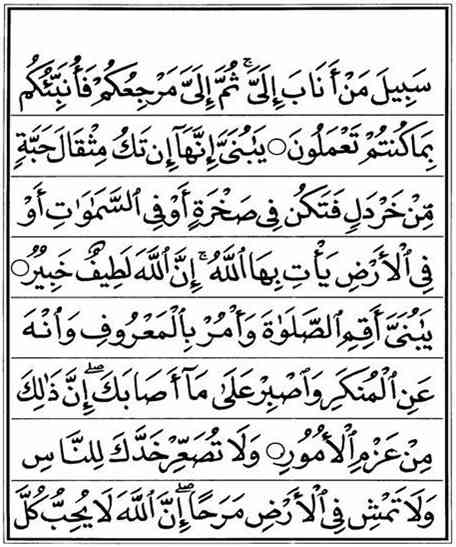 سَبِيلَ مَنْ أَنَابَ إِلَىَّ ۚ ثُمَّ إِلَىَّ مَرْجِعُكُمْ فَأُنَبِّئُكُم
بِمَا كُنتُمْ تَعْمَلُونَ ۝ يَٰبُنَىَّ إِنَّهَآ إِن تَكُ مِثْقَالَ حَبَّةٍ
مِّنْ خَرْدَلٍ فَتَكُن فِى صَخْرَةٍ أَوْ فِى ٱلسَّمَٰوَٰتِ أَوْ
فِى ٱلْأَرْضِ يَأْتِ بِهَا ٱللَّهُ ۚ إِنَّ ٱللَّهَ لَطِيفٌ خَبِيرٌ ۝
يَٰبُنَىَّ أَقِمِ ٱلصَّلَوٰةَ وَأْمُرْ بِٱلْمَعْرُوفِ وَٱنْهَ
عَنِ ٱلْمُنكَرِ وَٱصْبِرْ عَلَىٰ مَآ أَصَابَكَ ۖ إِنَّ ذَٰلِكَ
مِنْ عَزْمِ ٱلْأُمُورِ ۝ وَلَا تُصَعِّرْ خَدَّكَ لِلنَّاسِ
وَلَا تَمْشِ فِى ٱلْأَرْضِ مَرَحًا ۖ إِنَّ ٱللَّهَ لَا يُحِبُّ كُلَّ